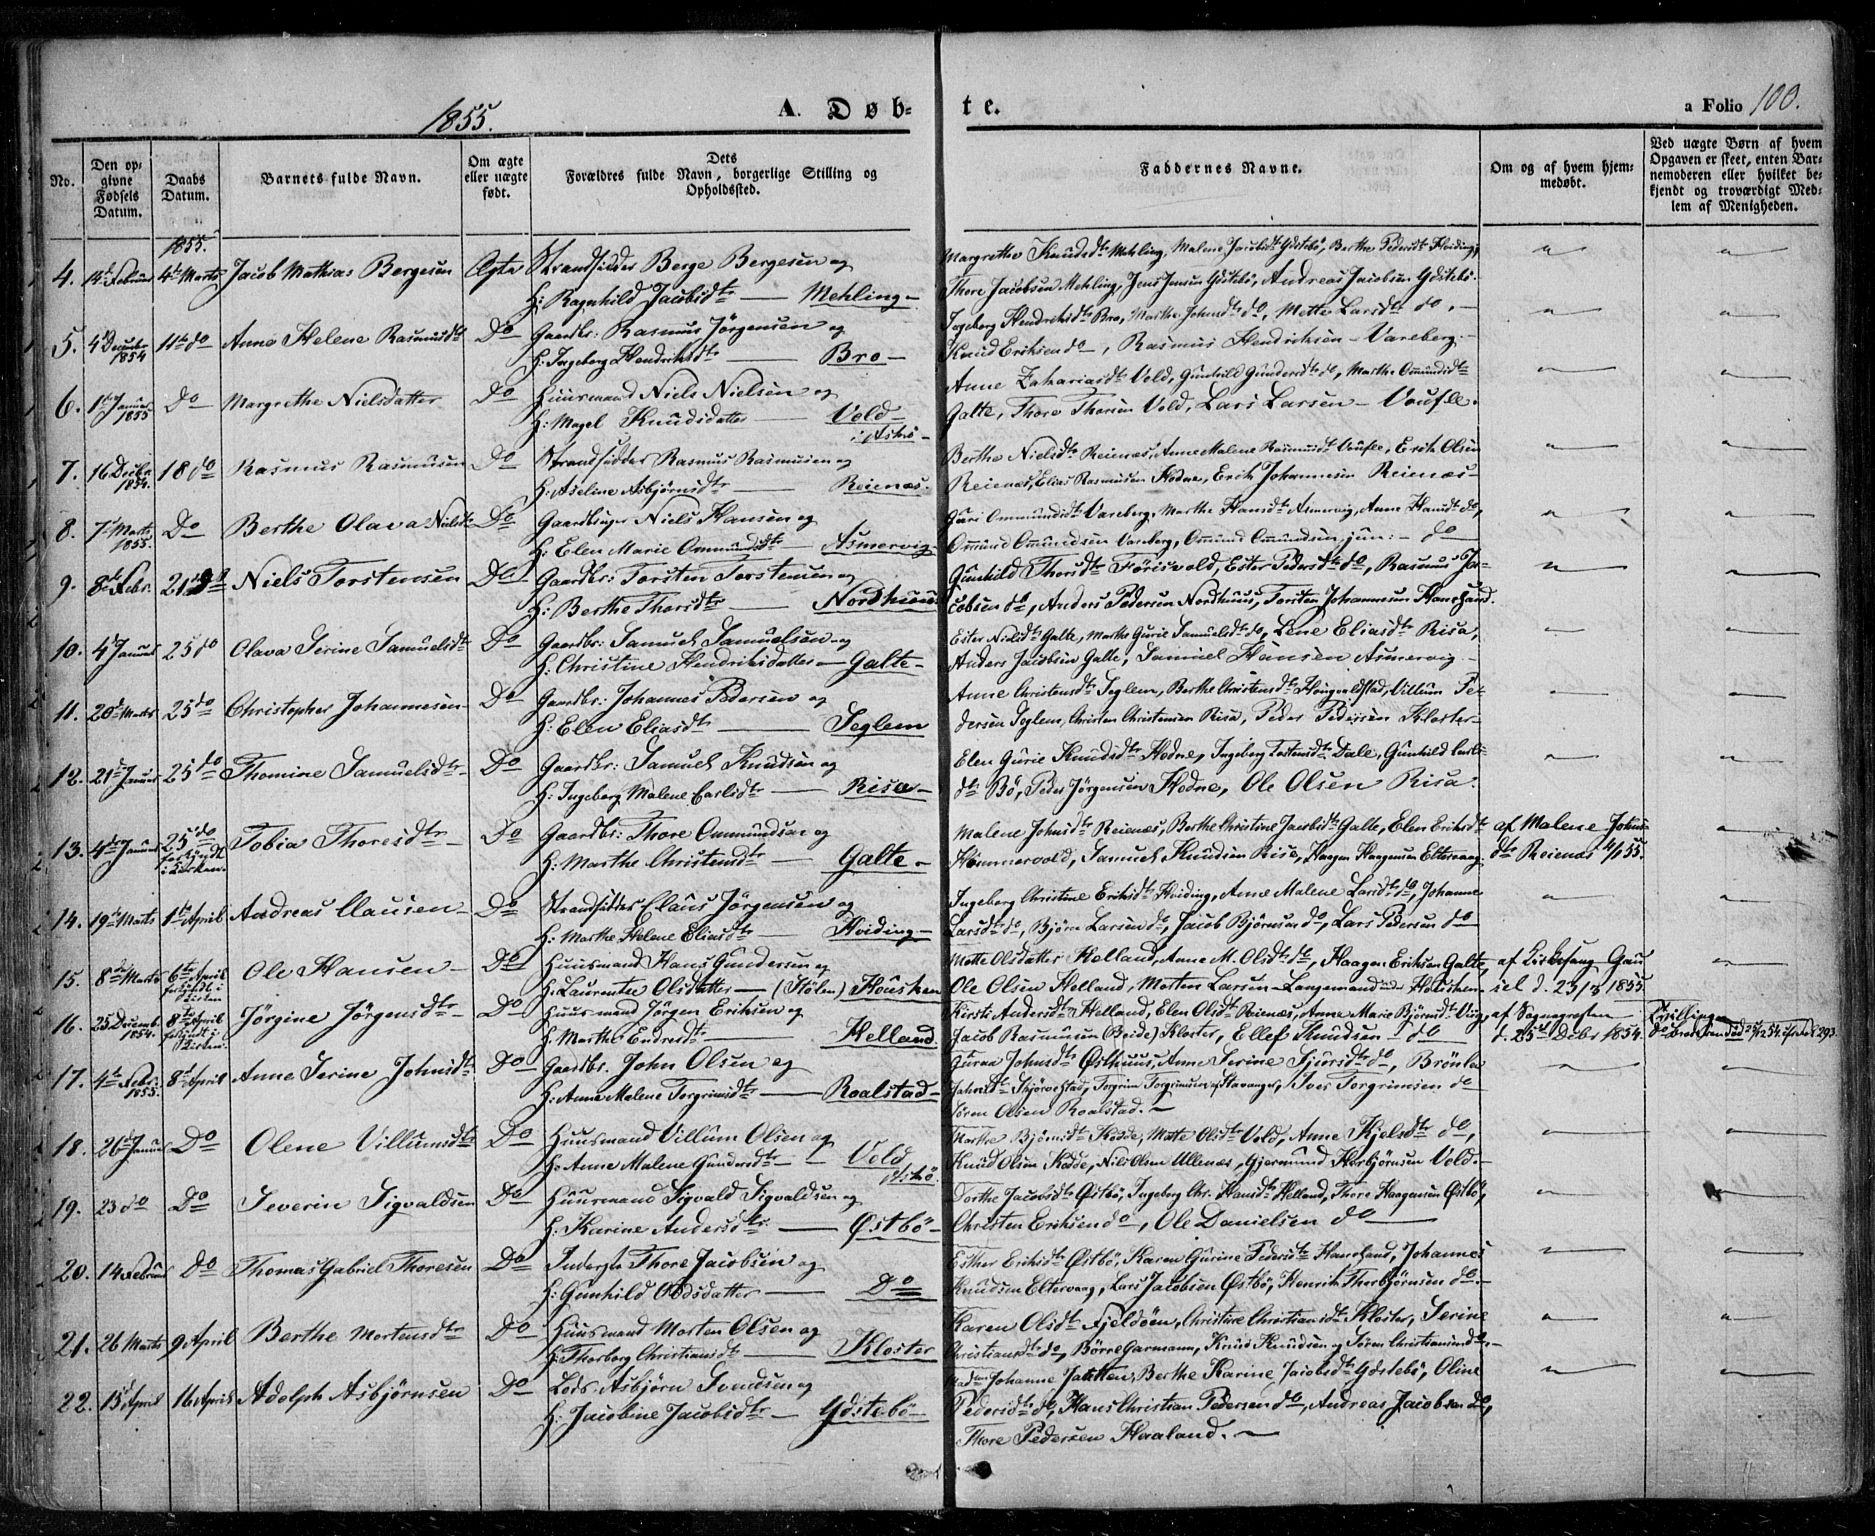 1855.
A. Døb-
te.
a Folio 100.
No.
Den op-
givne
Fødsels
Datum.
Daabs
Datum.
Barnets fulde Navn.
Om ægte
eller uægte
født.
Dets
Forældres fulde Navn, borgerlige Stilling og
Opholdssted.
Faddernes Navne.
Om og af hvem hjem-
medøbt.
Ved uægte Børn af hvem
Opgaven er skeet, enten Bar-
nemoderen eller hvilket be-
kjendt og troværdigt Med-
lem af Menigheden.
1855.
4. 14de Februar 4de Marts Jacob Mathias Bergesen Ægte Strandsidder Berge Bergesen og
H: Ragnhild Jacobsdtr — Mehling —
Margrethe Knudsdtr Mehling, Malene Jacobsdtr Ydstebö, Berthe Pedersdtr Hviding,
Thore Jacobsen Mehling, Jens Jensen Ydstebö, Andreas Jacobsen Ydstebö.
5. 4de December 1854 11te do Anne Helene Rasmusdtr Do Gaardbr: Rasmus Jörgensen og
H: Ingeborg Hendriksdtr — Bro —
Ingeborg Hendriksdtr Bro, Marthe Johnsdtr do, Mette Larsdtr do, —
Knud Eriksen do —, Rasmus Hendriksen — Vareberg. —
6. 1ste Januar 1855 Do Margrethe Nielsdatter Do Huusmand Niels Nielsen og
H: Magel Knudsdatter — Vold
i Askö —
Anne Zakariasdtr Vold, Gunhild Gundersdtr do, Marthe Omundsdtr
Galte, Thore Thorsen Vold, Lars Larsen — Voufle.
7. 16 Decbr 1854. 18 do Rasmus Rasmusen Do Strandsidder Rasmus Rasmusen og
H: Aseline Asbjörnsdtr — Reienæs.
Berthe Nielsdtr Reienæs, Anne Malene Rasmusdtr Voufle, Erik Olsen
Reienæs, Elias Rasmusen Hodne, Erik Johannesen Reienæs —
8. 7de Marts 1855. Do Berthe Olava Nielsdtr Do Gaardbruger Niels Hansen og
H: Elen Marie Ommundsdtr — Asmervig —
Guri Ommundsdtr Vareberg, Marthe Hansdtr Asmervig, Anne Hansdtr do,
Ommund Ommundsen Vareberg, Ommund Ommundsen jun: — do
9. 8de Febr. 21 do Niels Torstensen Do Gaardbr: Torsten Torstensen og
H: Berthe Thorsdtr — Nordhuus
Gunhild Thorsdtr Förisvold, Ester Pedersdtr do, Rasmus Ja-
cobsen do, Anders Pedersen Nordhuus, Torsten Johannesen Haugland.
10. 4de Januar 25 do Olava Serine Samuelsdtr Do Gaardbr: Samuel Samuelsen og
H: Christine Hendriksdatter — Galte —
Ester Nielsdtr Galte, Marthe Gurie Samuelsdtr do, Lene Eliasdtr Risa,
Anders Jacobsen Galte, Samuel Hansen Asmervig —
11. 20de Marts 25 do Christopher Johannesen Do Gaardbr: Johannes Pedersen og
H: Elen Eliasdtr — Seglem
Anne Christensdtr Seglem, Berthe Christensdtr Hougvaldstad, Villum Pe-
dersen Seglem, Christen Christensen Risa, Peder Pedersen Kloster —
12. 21de Januar 25 do Thomine Samuelsdtr Do Gaardbr: Samuel Knudsen og
H: Ingeborg Malene Carlsdtr — Risa —
Elen Gurie Knudsdtr Hodne, Ingeborg Torstensdtr Dale, Gunhild Carls-
dtr Bö, Peder Jörgensen Hodne, Ole Olsen Risa.
13. 4de Januar 25 do forkyndt i Kirken. Tobia Thoresdtr Do Gaardbr: Thore Ommundsen og
H: Marthe Christensdtr — Galte —
Malene Johnsdtr Reienæs, Berthe Christine Jacobsdtr Galte, Elen Eriksdtr
Hommervold, Samuel Knudsen Risa, Haagen Haagensen Eltervaag.
af Malene Johns-
dtr Reienæs 4/1 55.
14. 19de Marts 1ste April Andreas Clausen Do Strandsidder Claus Jörgensen og
H: Marthe Helene Eliasdtr — Hviding —
Ingeborg Christine Eriksdtr Hviding, Anne Malene Larsdtr do, Johanne
Larsdtr do, Björn Larsen do, Jacob Björnsen do, Lars Pedersen do
15. 8de Marts 6te April forkyndt i Kirken Ole Hansen Do Huusmand Hans Gundersen og
H: Laurentse Olsdatter — (Hölen) Housken
Mette Olsdatter Helland, Anne M. Olsdtr do, Haagen Eriksen Galte,
Ole Olsen Helland, Morten Larsen Langemand under Housken
af Kirkesang. Gau-
sel d. 23/3 1855.
16. 25 Decemb. 1854. 8de April forkyndt i Kirken Jörgine Jörgensdtr Do Huusmand Jörgen Eriksen og
H: Marthe Endresdtr — Helland
Kirsti Andersdtr Helland, Elen Olsdtr Reienæs, Anne Marie Björnsdtr Viig,
Jacob Rasmusen (Beide) Kloster, Ellef Knudsen do
af Sognepresten
d. 25de Decbr 1854.
Tvilling
17. 4de Febr. 1855. 8de April Anne Serine Johnsdtr Do Gaardbr. John Olsen og
H: Anne Malene Torgrimsdtr — Roalstad —
Guroe Johnsdtr Østhuus, Anne Serine Sjursdtr do, Brönla
Johnsdtr Skjörestad, Torgrim Torgrimsen af Stavanger, Ivar Torgrimsen do
Sören Olsen Roalstad. —
18. 26de Januar Do Olene Villumsdtr Do Huusmand Villum Olsen og
H: Anne Malene Gundersdtr — Vold
p/Askö.
Marthe Björnsdtr Kodde, Mate Olsdtr Vold, Anne Kjelsdtr do,
Knud Olsen Kodde, Niels Olsen Ullenæs, Gjermund Thorbjörnsen Vold. —
19. 23 do Do Severin Sigvaldsen Do Huusmand Sigvald Sigvaldsen og
H: Karine Andersdtr — Østbö —
Dorthe Jacobsdtr Østbö, Ingeborg Chr. Hansdtr Helland, Thore Haagensen Østbö,
Christen Eriksen do, Ole Danielsen do —
20. 14 Februar Do Thomas Gabriel Thoresen Do Inderste Thore Jacobsen og
H: Gunhild Oddsdatter — Do
Esther Eriksdtr Østbö, Karen Gurine Pedersdtr Haugland, Johannes
Knudsen Eltervaag, Lars Jacobsen Østbö, Henrik Thorbjörnsen do. —
21. 26 Marts 9 April Berthe Mortensdtr Do Huusmand Morten Olsen og
H: Thorborg Christiansdtr — Kloster
Karen Olsdtr Fjeldöen, Christine Christiansdtr Kloster, Serine
Christiansdtr do, Börre Garmann, Knud Knudsen og Sören Christiansen do. —
22. 15de April 16 April Adolph Asbjörnsen Do Lods Asbjörn Svendsen og
H: Jacobine Jacobsdtr — Ydstebö —
Madam Johanne Jahtten, Berthe Karine Jacobsdtr Ydstebö, Oline
Pedersdtr do, Hans Christian Pedersen do, Andreas Jacobsen do,
Thore Pedersen Haaland. —